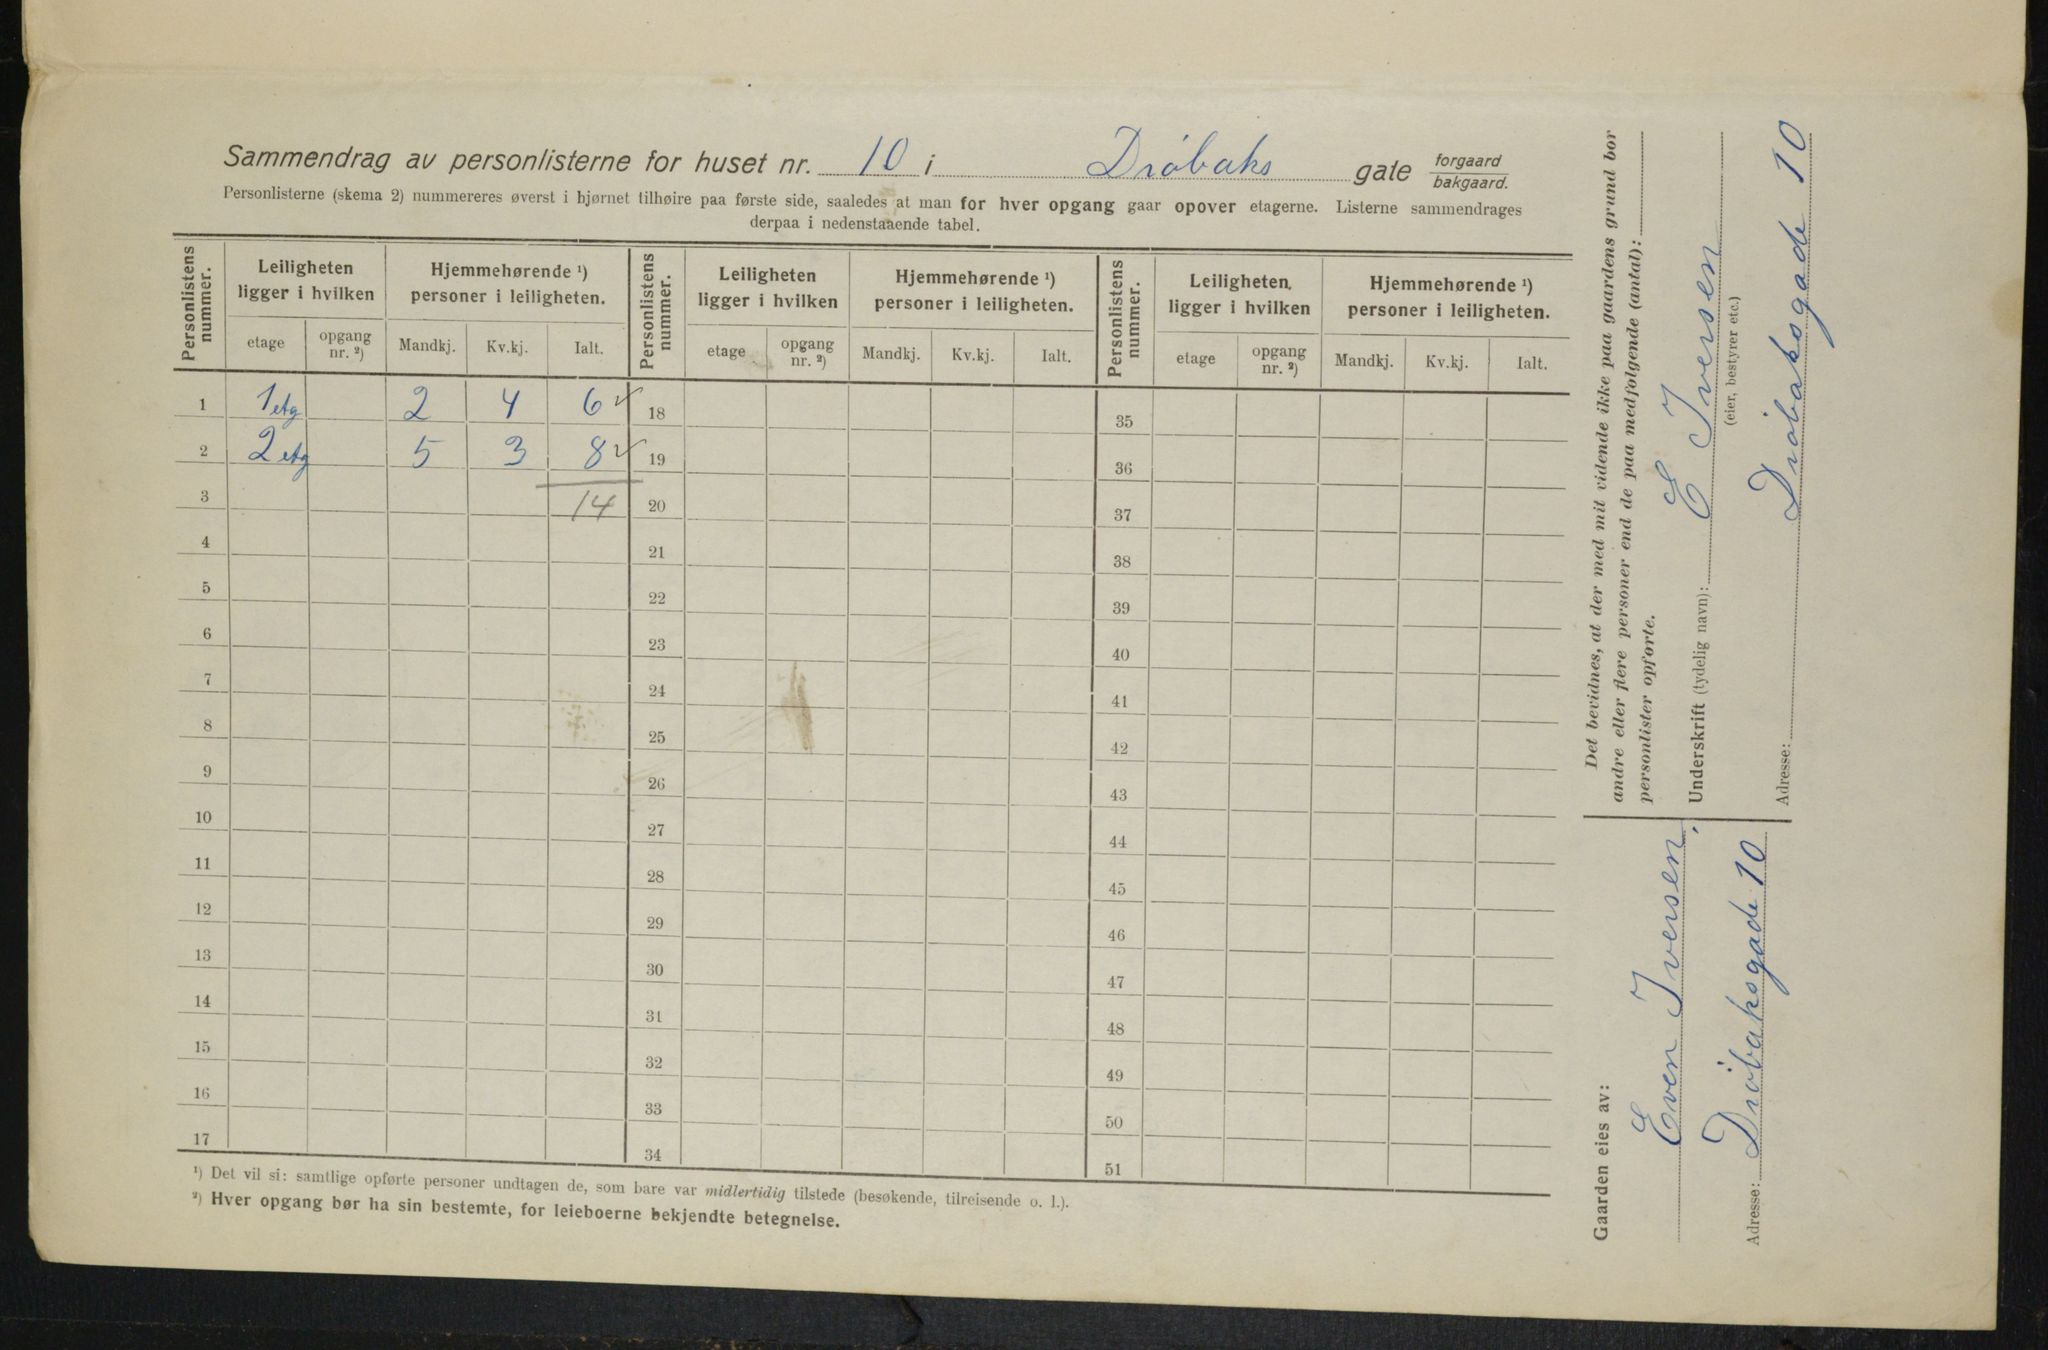 Sammendrag av personlisterne for huset nr. 10 i Drøbaks gate forgaard bakgaard.
Personlisterne (skema 2) nummereres øverst i hjørnet tilhøire paa første side, saaledes at man for hver opgang gaar opover etagerne. Listerne sammendrages
derpaa i nedenstaaende tabel.
Personlistens nummer. Leiligheten ligger i hvilken Hjemmehørende ¹) personer i leiligheten. Personlistens nummer. Leiligheten ligger i hvilken Hjemmehørende ¹) personer i leiligheten. Personlistens nummer. Leiligheten ligger i hvilken Hjemmehørende ¹) personer i leiligheten.
etage opgang nr. ²) Mandkj. Kv.kj. Ialt. etage opgang nr. ²) Mandkj. Kv.kj. Ialt. etage opgang nr. ²) Mandkj. Kv.kj. Ialt.
1 1 etg 2 4 6 18 35
2 2 etg 5 3 8 19 36
3 14 20 37
4 21 38
5 22 39
6 23 40
7 24 41
8 25 42
9 26 43
10 27 44
11 28 45
12 29 46
13 30 47
14 31 48
15 32 49
16 33 50
17 34 51
¹) Det vil si: samtlige opførte personer undtagen de, som bare var midlertidig tilstede (besøkende, tilreisende o. l.).
²) Hver opgang bør ha sin bestemte, for leieboerne bekjendte betegnelse.
Det bevidnes, at der med mit vidende ikke paa gaardens grund bor
andre eller flere personer end de paa medfølgende (antal):
personlister opførte.
Underskrift (tydelig navn): E Iversen
(eier, bestyrer etc.)
Adresse: Drøbaksgade 10
Gaarden eies av:
Even Iversen,
Adresse: Drøbaksgade 10